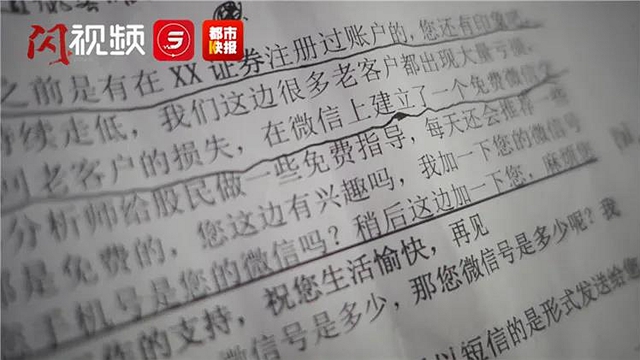 闪视频
都市
快报
之前是有在XX证券注册过账户的，您还有印象吧
持续走低，我们这边很多老客户都出现大量亏损，
回老客户的损失，在微信上建立了一个免费微信
分析师给股民做一些免费指导，每天还会推荐一些
都是免费的，您这边有兴趣吗，我加一下您的微信号
手机号是您的微信吗？稍后这边加一下您，麻烦您
的支持，祝您生活愉快，再见
微信号是多少，那您微信号是多少呢？我
以短信的是形式发送给